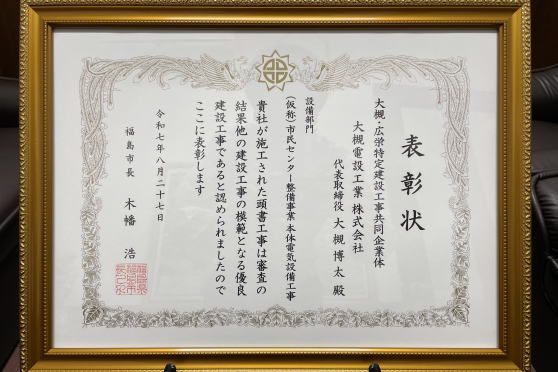 表彰状
大槻・広栄特定建設工事共同企業体
大槻電設工業株式会社
代表取締役 大槻博太 殿
設備部門
(仮称)市民センター整備事業 本体電気設備工事
貴社が施工された頭書工事は審査の
結果他の建設工事の模範となる優良
建設工事であると認められましたので
ここに表彰します
令和七年八月二十七日
福島市長 木幡 浩